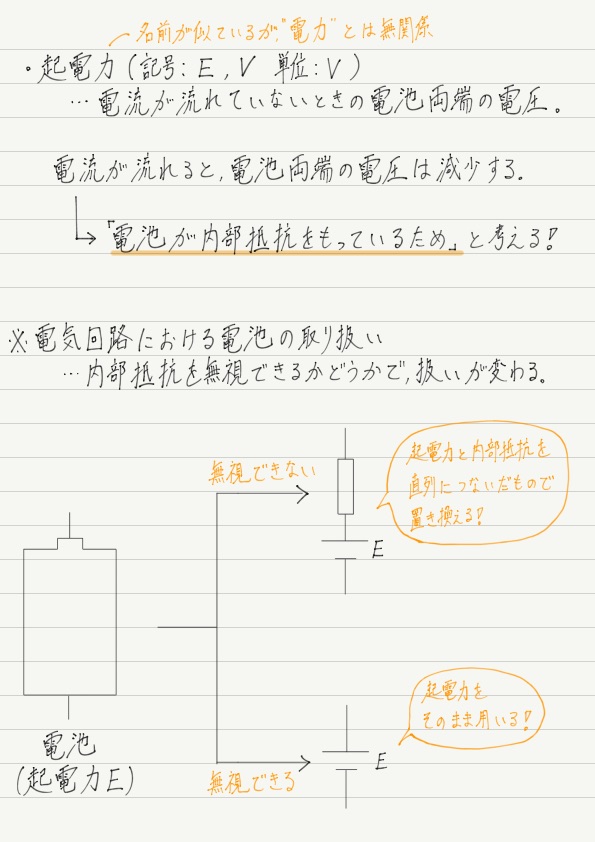 名前が似ているが、"電力"とは無関係
・起電力(記号: E, V 単位: V)
…電流が流れていないときの電池両端の電圧。
電流が流れると,電池両端の電圧は減少する。
「電池が内部抵抗をもっているため」と考える!
※電気回路における電池の取り扱い
…内部抵抗を無視できるかどうかで,扱いが変わる。
無視できない
起電力と内部抵抗を
直列につないだもので
置き換える!
E
電池
(起電力E)
起電力を
そのまま用いる!
E
無視できる